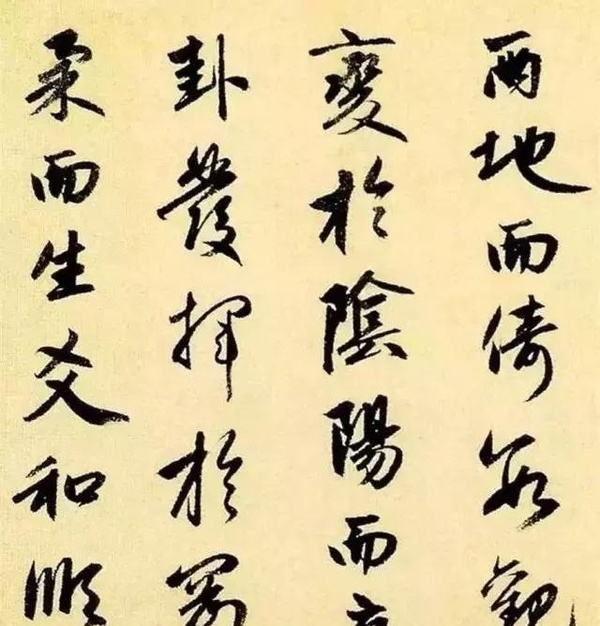 兩地而倚數觀
變於陰陽而
卦發揮於剛
柔而生爻和順